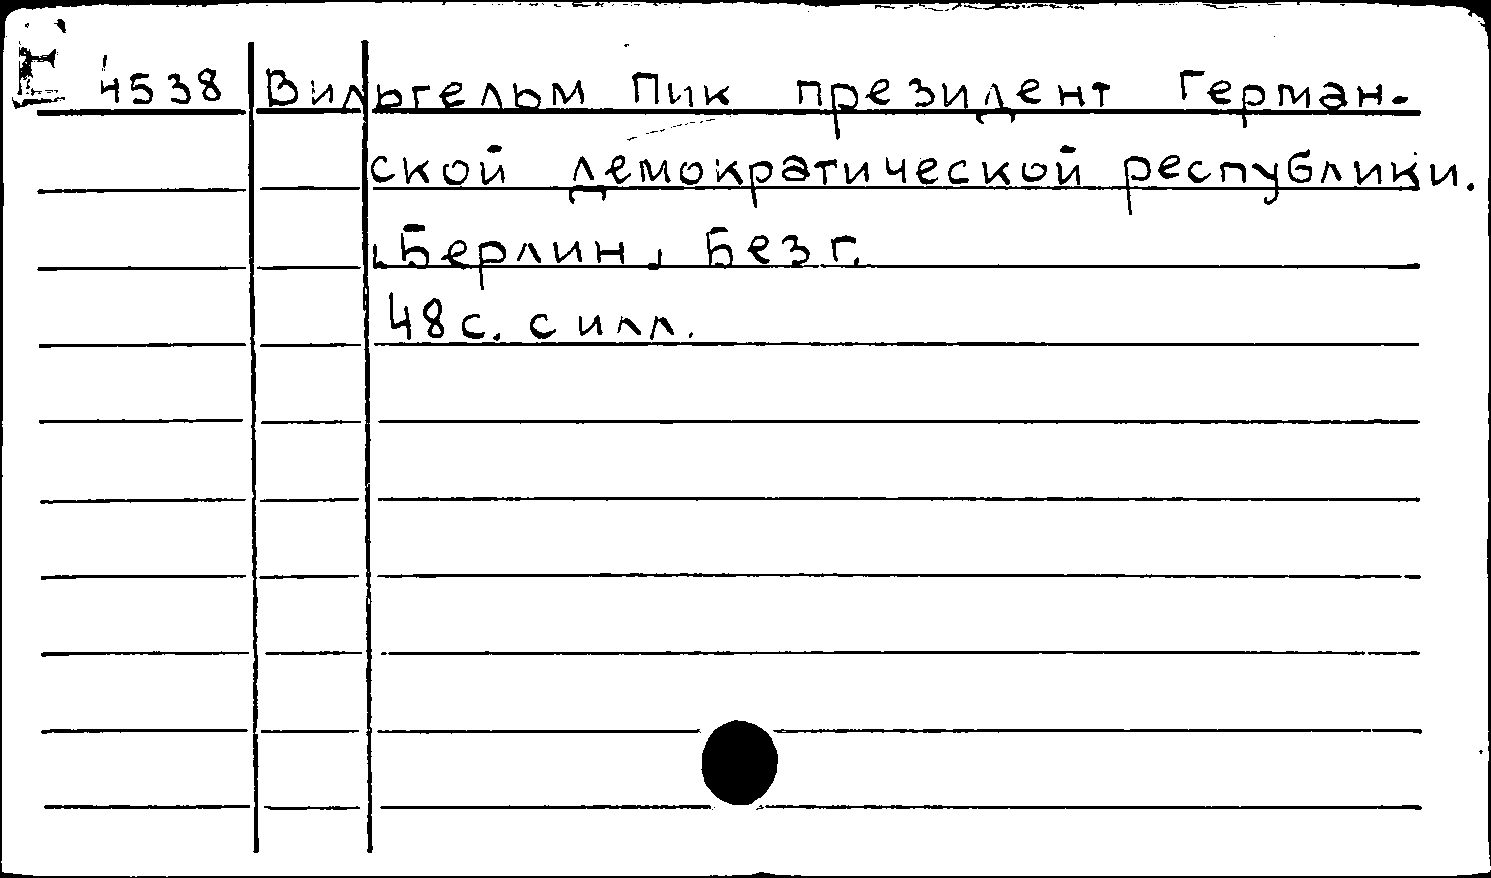 Е 4538 Вильгельм Пик президент Герман-
ской демократической республики.
Берлин, Без г.
48 с. с илл.